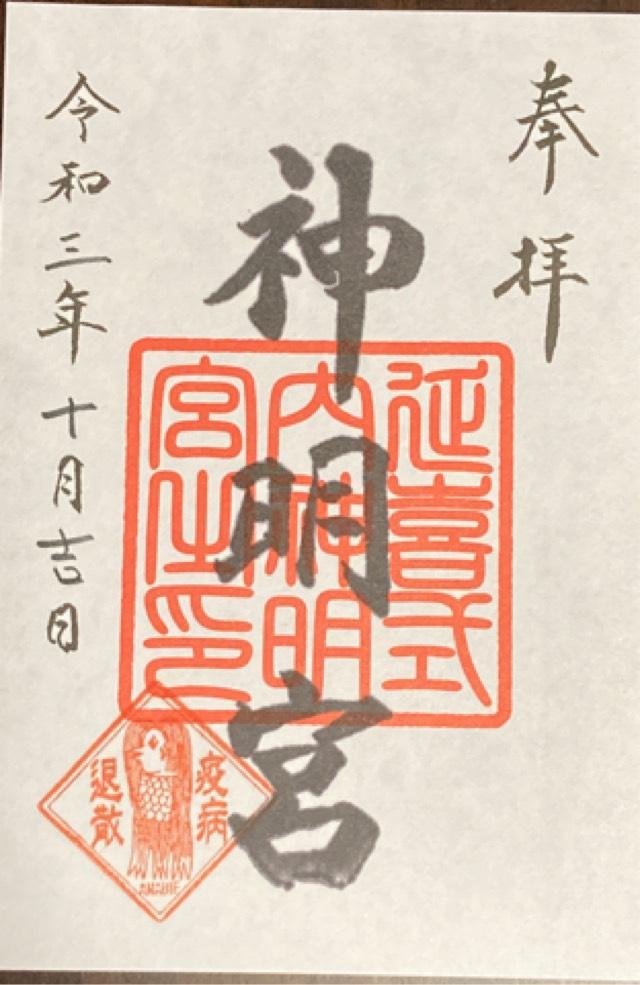 奉拝
神明宮
延喜式
内神明
宮之印
令和三年十月吉日
疫病
退散
AMABIE